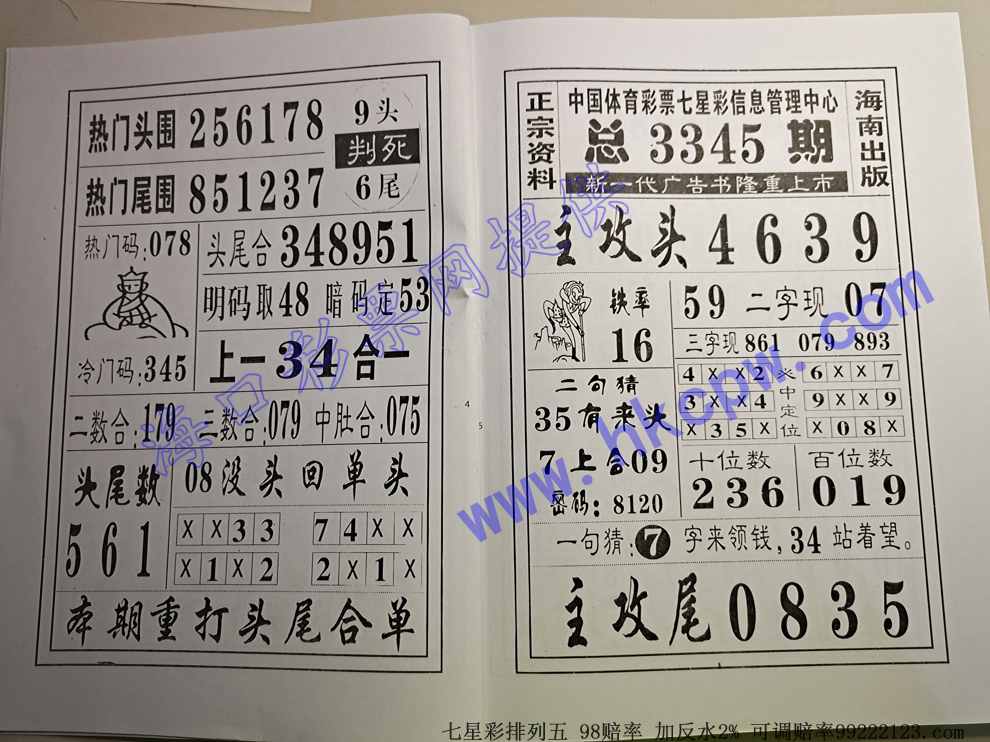 热门头围 256178
9头
判死
6尾
热门尾围 851237
热门码:078
头尾合 348951
明码取48 暗码定53
冷门码:345
上一34合一
二数合:179 三数合:079 中肚合:075
头尾数
561
08没头回单头
X X 3 3 7 4 X X
X 1 X 2 2 X 1 X
本期重打头尾合单
4
5
正宗资料
中国体育彩票七星彩信息管理中心
总 3345 期
新一代广告书隆重上市
海南出版
主攻头 4639
铁率
16
59 二字现 07
三字现 861 079 893
4 X X 2 6 X X 7
3 X X 4 9 X X 9
X 3 5 X X 0 8 X
头中定位
二句猜
35有来头
7上合09
密码:8120
十位数
236
百位数
019
一句猜:7字来领钱,34站着望。
主攻尾 0835
海口彩票网提供
www.hkcpw.com
七星彩排列五 98赔率 加反水2% 可调赔率99222123.com